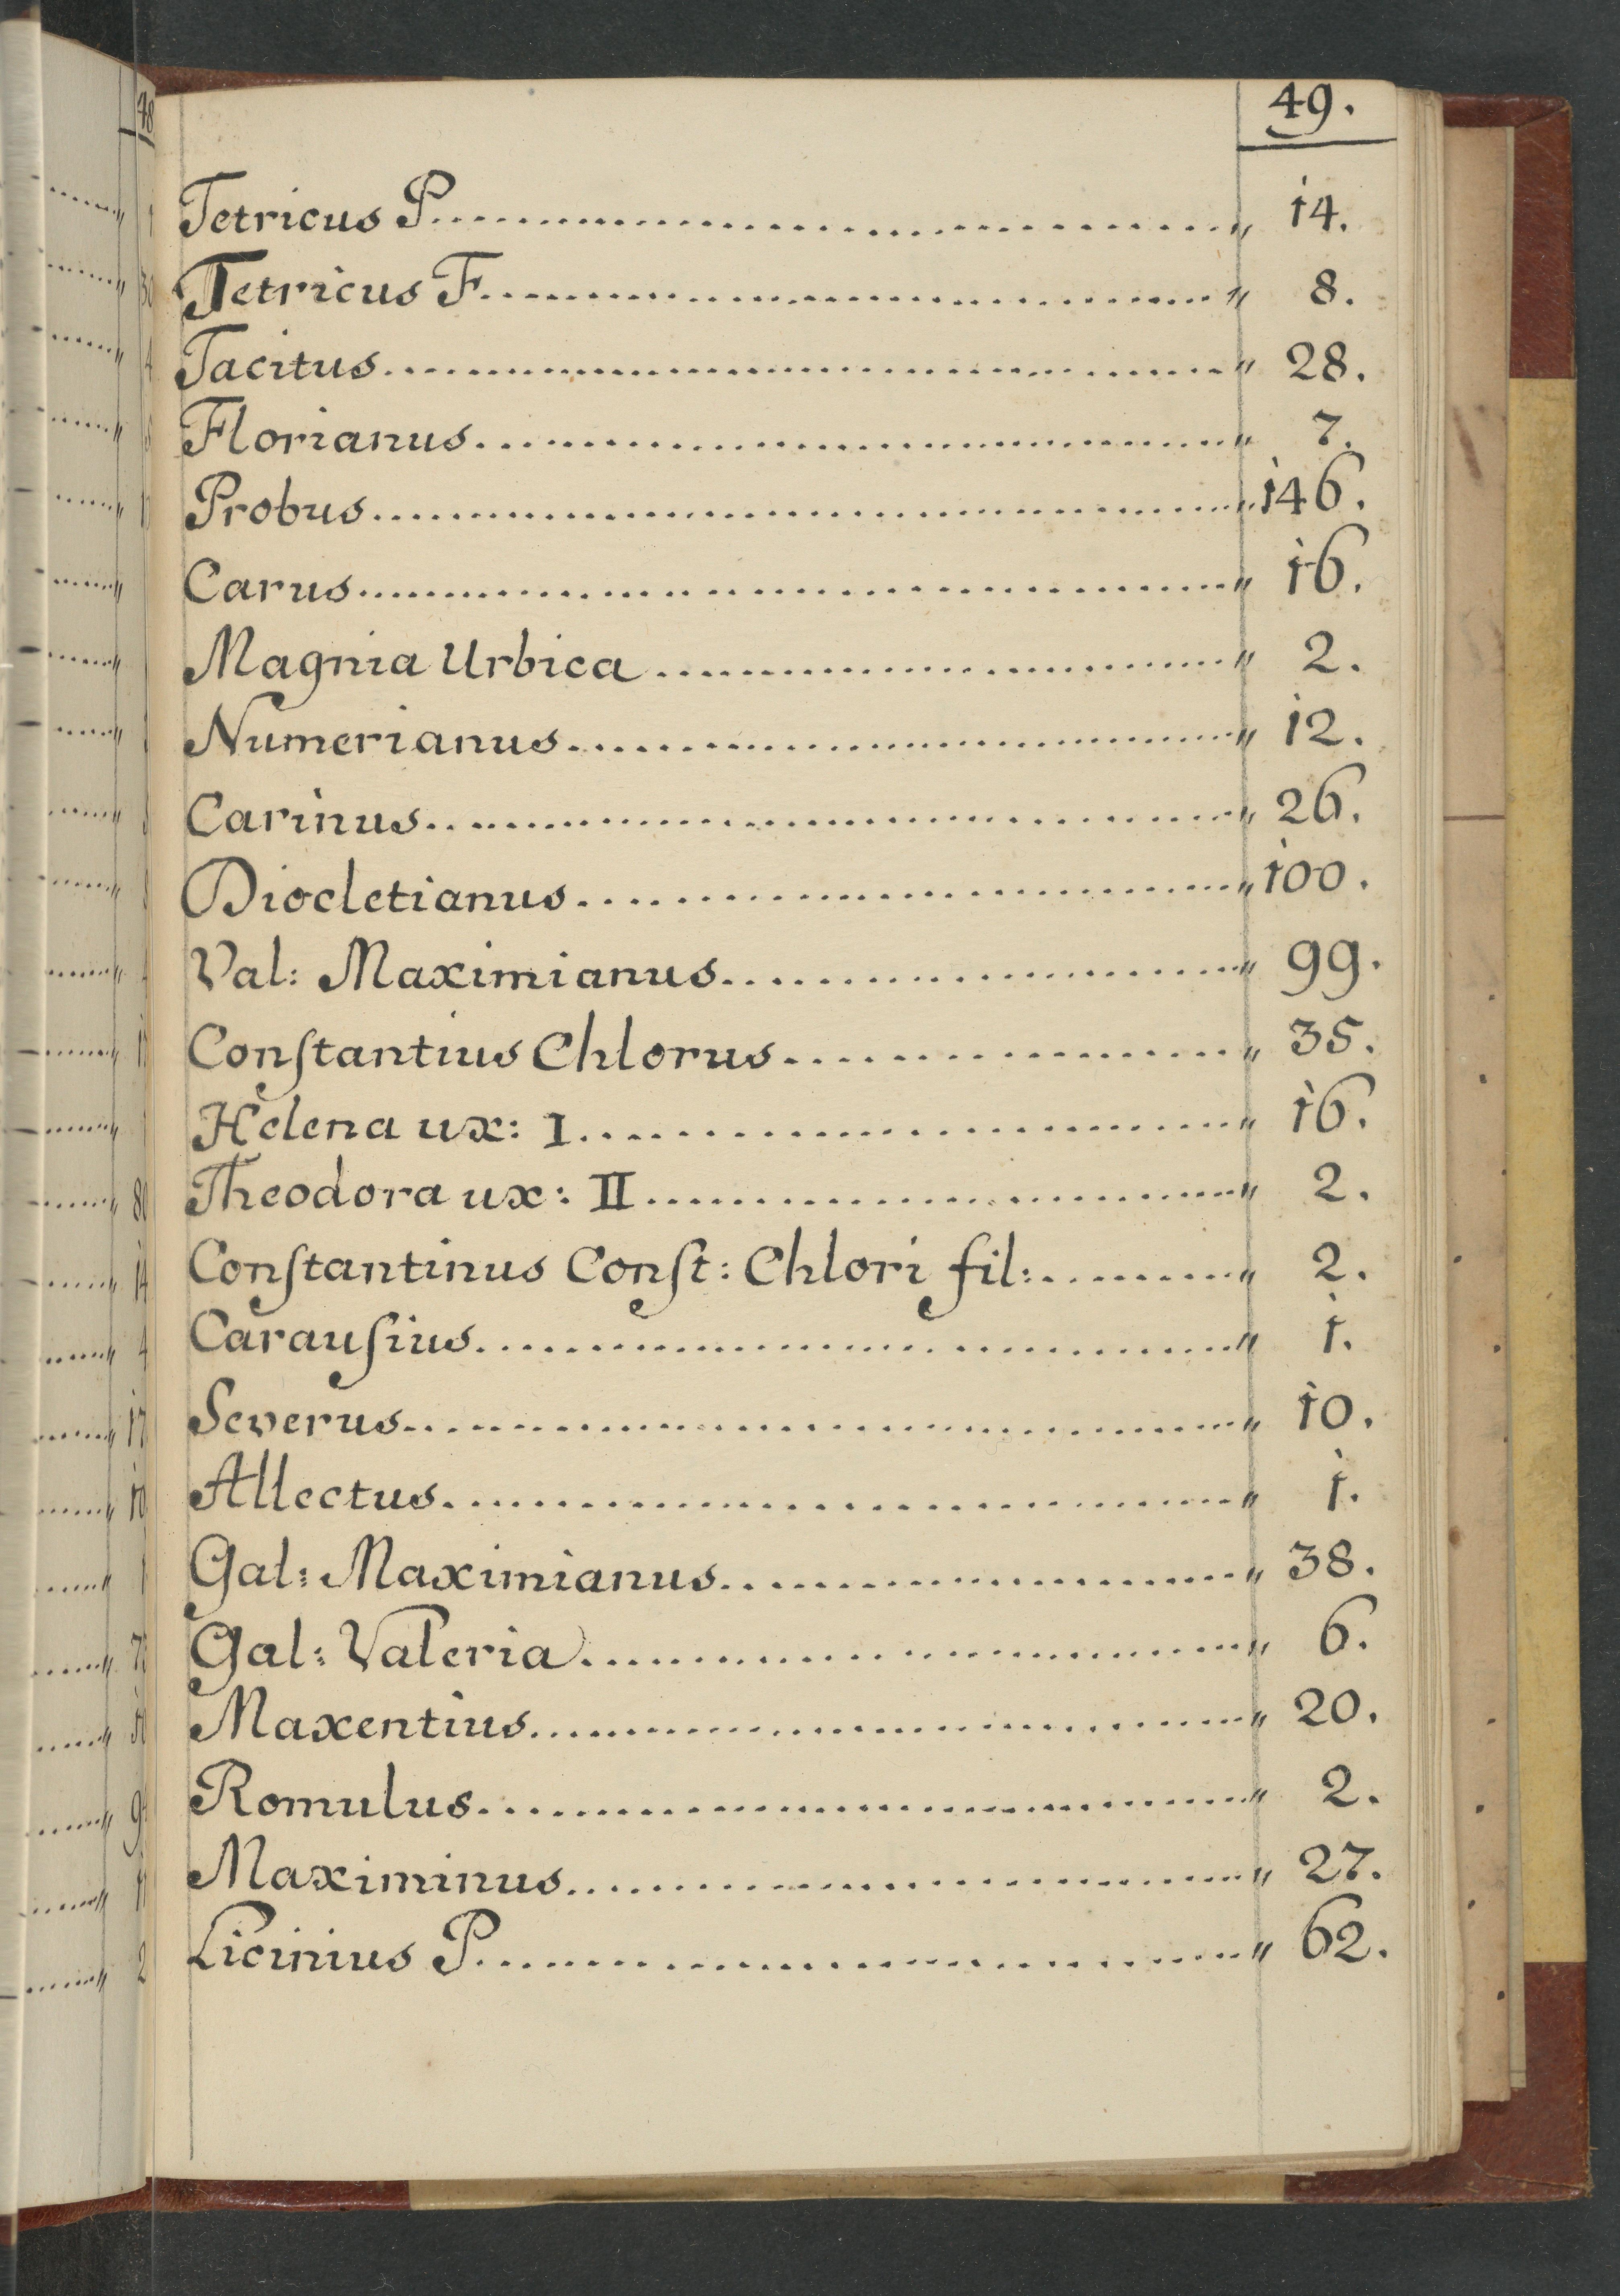 49.
Tetricus P. „ 14.
Tetricus F. „ 8.
Tacitus. „ 28.
Florianus. „ 7.
Probus. „ 146.
Carus. „ 16.
Magnia Urbica „ 2.
Numerianus. „ 12.
Carinus. „ 26.
Diocletianus. „ 100.
Val: Maximianus. „ 99.
Conſtantius Chlorus. „ 35.
Helena ux: I. „ 16.
Theodora ux: II. „ 2.
Conſtantinus Conſt: Chlori fil: „ 2.
Carauſius. „ 1.
Severus. „ 10.
Allectus. „ 1.
Gal: Maximianus. „ 38.
Gal: Valeria. „ 6.
Maxentius. „ 20.
Romulus. „ 2.
Maximinus. „ 27.
Licinius P. „ 62.